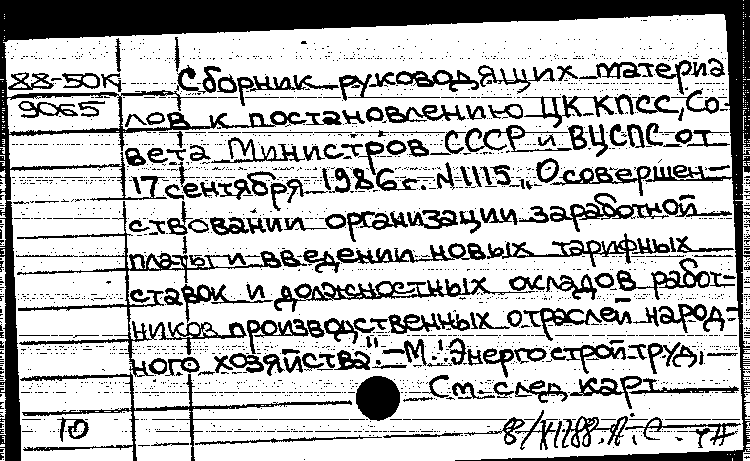 88-50К Сборник руководящих материа
9065 лов к постановлению ЦК КПСС, Со-
вета Министров СССР и ВЦСПС от
17 сентября 1986 г. N 1115 „О совершен-
ствовании организации заработной
платы и введении новых тарифных
ставок и должностных окладов работ-
ников производственных отраслей народ-
ного хозяйства". – М.: Энергостройтруд,
См. след карт.
10